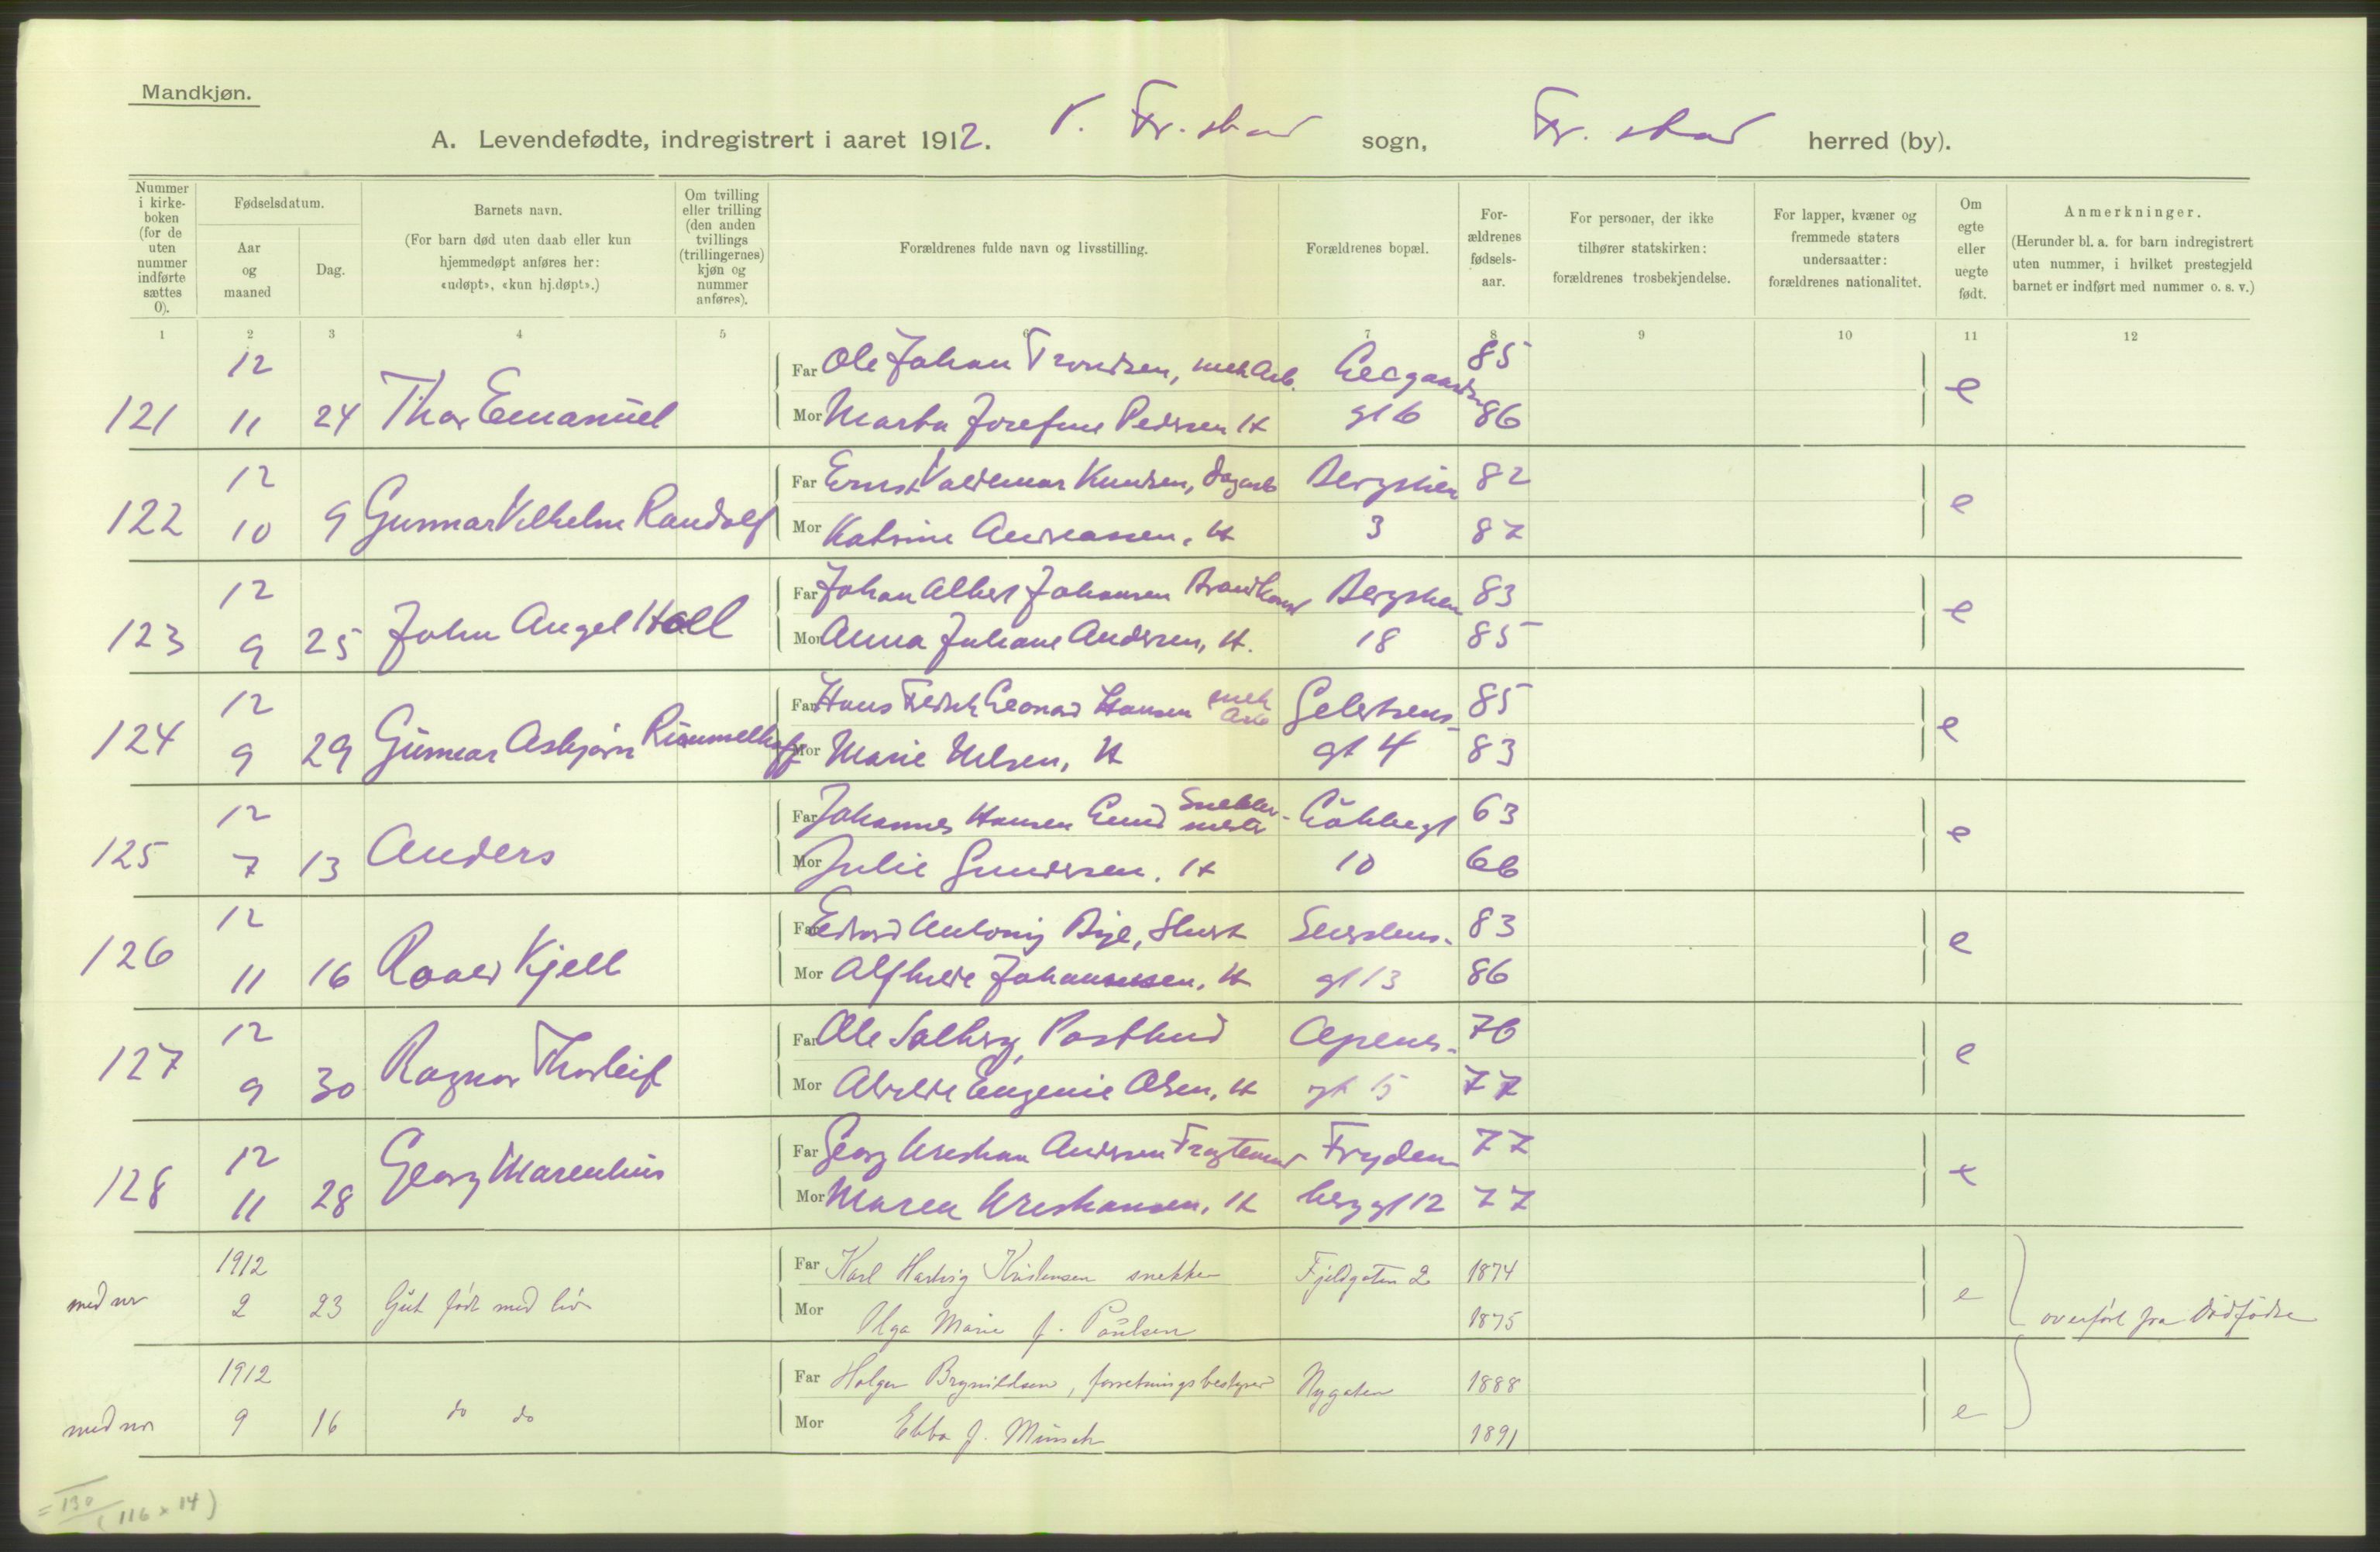 Mandkjøn.
A. Levendefødte, indregistrert i aaret 1912. V. Fr.stad sogn, Fr. stad herred (by).
Nummer i kirkeboken (for de uten nummer indførte sættes 0).
Fødselsdatum.
Aar og maaned
Dag.
Barnets navn.
(For barn død uten daab eller kun hjemmedøpt anføres her: «udøpt», «kun hj.døpt».)
Om tvilling eller trilling (den anden tvillings (trillingernes) kjøn og nummer anføres).
Forældrenes fulde navn og livsstilling.
Forældrenes bopæl.
Forældrenes fødselsaar.
For personer, der ikke tilhører statskirken: forældrenes trosbekjendelse.
For lapper, kvæner og fremmede staters undersaatter: forældrenes nationalitet.
Om egte eller uegte født.
Anmerkninger.
(Herunder bl. a. for barn indregistrert uten nummer, i hvilket prestegjeld barnet er indført med nummer o. s. v.)
1 2 3 4 5 6 7 8 9 10 11 12
12 Far Ole Johan Trondsen, mek Arb. 85
121 11 24 Thor Emanuel Mor Marta Josefine Pedersen H gt 6 86 e
12 Far Ernst Valdemar Knudsen, dagarb Bergslien 82
122 10 9 Gunnar Vilhelm Randolf Mor Katrine Andreassen, H 3 87 e
12 Far Johan Albert Johansen Brandkonst Bergslien 83
123 9 25 John Angel Hall Mor Anna Juliane Andersen, H. 18 85 e
12 Far Hans Fredrik Leonard Hansen mek Arb Gelertsens- 85
124 9 29 Gunnar Asbjørn Mor Marie Nilsen, H gt 4 83 e
12 Far Johannes Hansen Lund Snekkermester 63
125 7 13 Anders Mor Julie Gundersen, H 10 66 e
12 Far Edvard Antonij Bye, 83
126 11 16 Roald Kjell Mor Alfhilde Johannessen, H gt 13 86 e
12 Far Ole Solberg, Postbud Apenes- 76
127 9 30 Ragnar Thorleif Mor Eugenie Olsen, H gt 15 77 e
12 Far Georg Kristian Andersen Fragtemand Fryden- 77
128 11 28 Georg Marenhius Mor Maren Kristiansen, H berg gt 12 77 e
1912 Far Karl Hartvig Kristensen snekker Fjeldgaten 2 1874
med nr 2 23 Gut født med liv Mor Olga Marie f. Paulsen 1875 e overført fra dødfødte
1912 Far Holger Brynildsen, forretningsbestyrer Nygaten 1888
med nr 9 16 do do Mor Ebba f. Münsch 1891 e
= 130 (116 + 14)